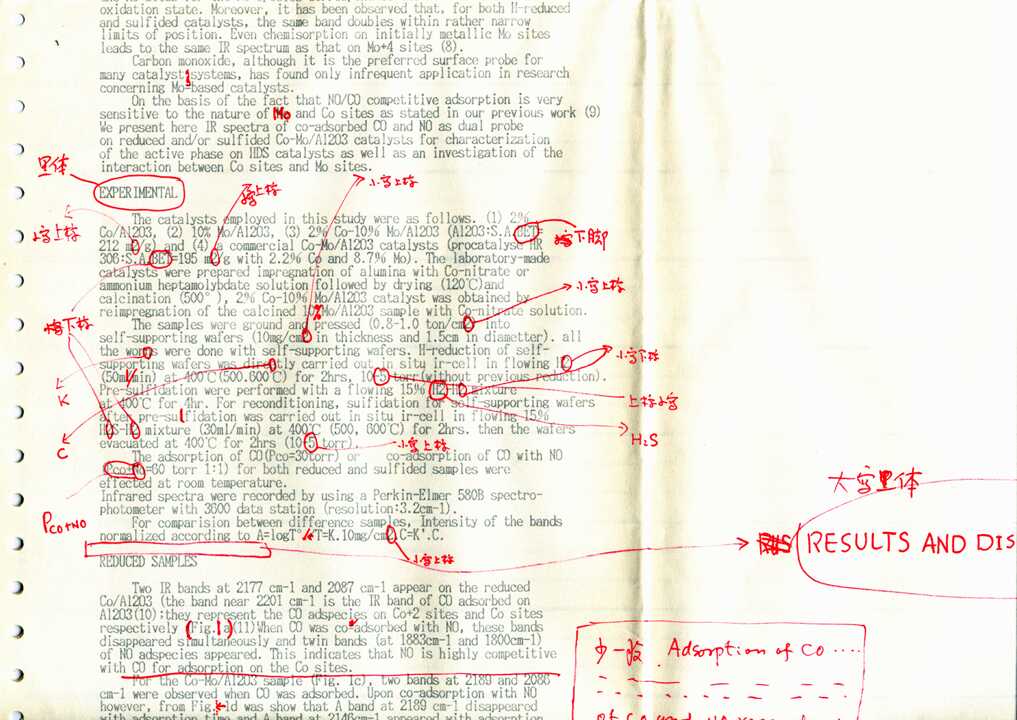 oxidation state. Moreover, it has been observed that, for both H-reduced
and sulfided catalysts, the same band doubles within rather narrow
limits of position. Even chemisorption on initially metallic Mo sites
leads to the same IR spectrum as that on Mo+4 sites (8).
Carbon monoxide, although it is the preferred surface probe for
many catalyst systems, has found only infrequent application in research
concerning Mo-based catalysts.
On the basis of the fact that NO/CO competitive adsorption is very
sensitive to the nature of Mo and Co sites as stated in our previous work (9)
We present here IR spectra of co-adsorbed CO and NO as dual probe
on reduced and/or sulfided Co-Mo/Al2O3 catalysts for characterization
of the active phase on HDS catalysts as well as an investigation of the
interaction between Co sites and Mo sites.
黑体
EXPERIMENTAL
小写上标
The catalysts employed in this study were as follows. (1) 2%
Co/Al2O3, (2) 10% Mo/Al2O3, (3) 2% Co-10% Mo/Al2O3 (Al2O3:S.A.BET=
212 m2/g) and (4) a commercial Co-Mo/Al2O3 catalysts (procatalyse HR
下脚
306:S.A.BET=195 m2/g with 2.2% Co and 8.7% Mo). The laboratory-made
catalysts were prepared impregnation of alumina with Co-nitrate or
ammonium heptamolybdate solution followed by drying (120℃)and
calcination (500°), 2% Co-10% Mo/Al2O3 catalyst was obtained by
小写上标
reimpregnation of the calcined 10%Mo/Al2O3 sample with Co-nitrate solution.
The samples were ground and pressed (0.8-1.0 ton/cm2) into
self-supporting wafers (10mg/cm2 in thickness and 1.5cm in diametter). all
the works were done with self-supporting wafers. H-reduction of self-
小写下标
supporting wafers was directly carried out in situ ir-cell in flowing H2
(50ml/min) at 400℃(500.600℃) for 2hrs, 10-5 torr(without previous reduction).
Pre-sulfidation were performed with a flowing 15% H2S-H2 mixture
K
上标小写
at 400℃ for 4hr. For reconditioning, sulfidation for self-supporting wafers
after pre-sulfidation was carried out in situ ir-cell in flowing 15%
H2S-H2 mixture (30ml/min) at 400℃ (500, 600℃) for 2hrs. then the wafers
H2S
C
evacuated at 400℃ for 2hrs (10-5 torr).
小写上标
The adsorption of CO(Pco=30torr) or co-adsorption of CO with NO
(Pco+No=60 torr 1:1) for both reduced and sulfided samples were
effected at room temperature.
大写黑体
Infrared spectra were recorded by using a Perkin-Elmer 580B spectro-
photometer with 3600 data station (resolution:3.2cm-1).
PCO+NO
For comparision between difference samples, Intensity of the bands
normalized according to A=logT°/T=K.10mg/cm2,C=K'.C.
RESULTS AND DIS
小写上标
REDUCED SAMPLES
Two IR bands at 2177 cm-1 and 2087 cm-1 appear on the reduced
Co/Al2O3 (the band near 2201 cm-1 is the IR band of CO adsorbed on
Al2O3(10);they represent the CO adspecies on Co+2 sites and Co sites
respectively (Fig.1a)(11)When CO was co-adsorbed with NO, these bands
disappeared simultaneously and twin bands (at 1883cm-1 and 1800cm-1)
of NO adspecies appeared. This indicates that NO is highly competitive
with CO for adsorption on the Co sites.
少一段 Adsorption of CO ....
For the Co-Mo/Al2O3 sample (Fig. 1c), two bands at 2189 and 2088
cm-1 were observed when CO was adsorbed. Upon co-adsorption with NO
however, from Fig.1d was show that A band at 2189 cm-1 disappeared